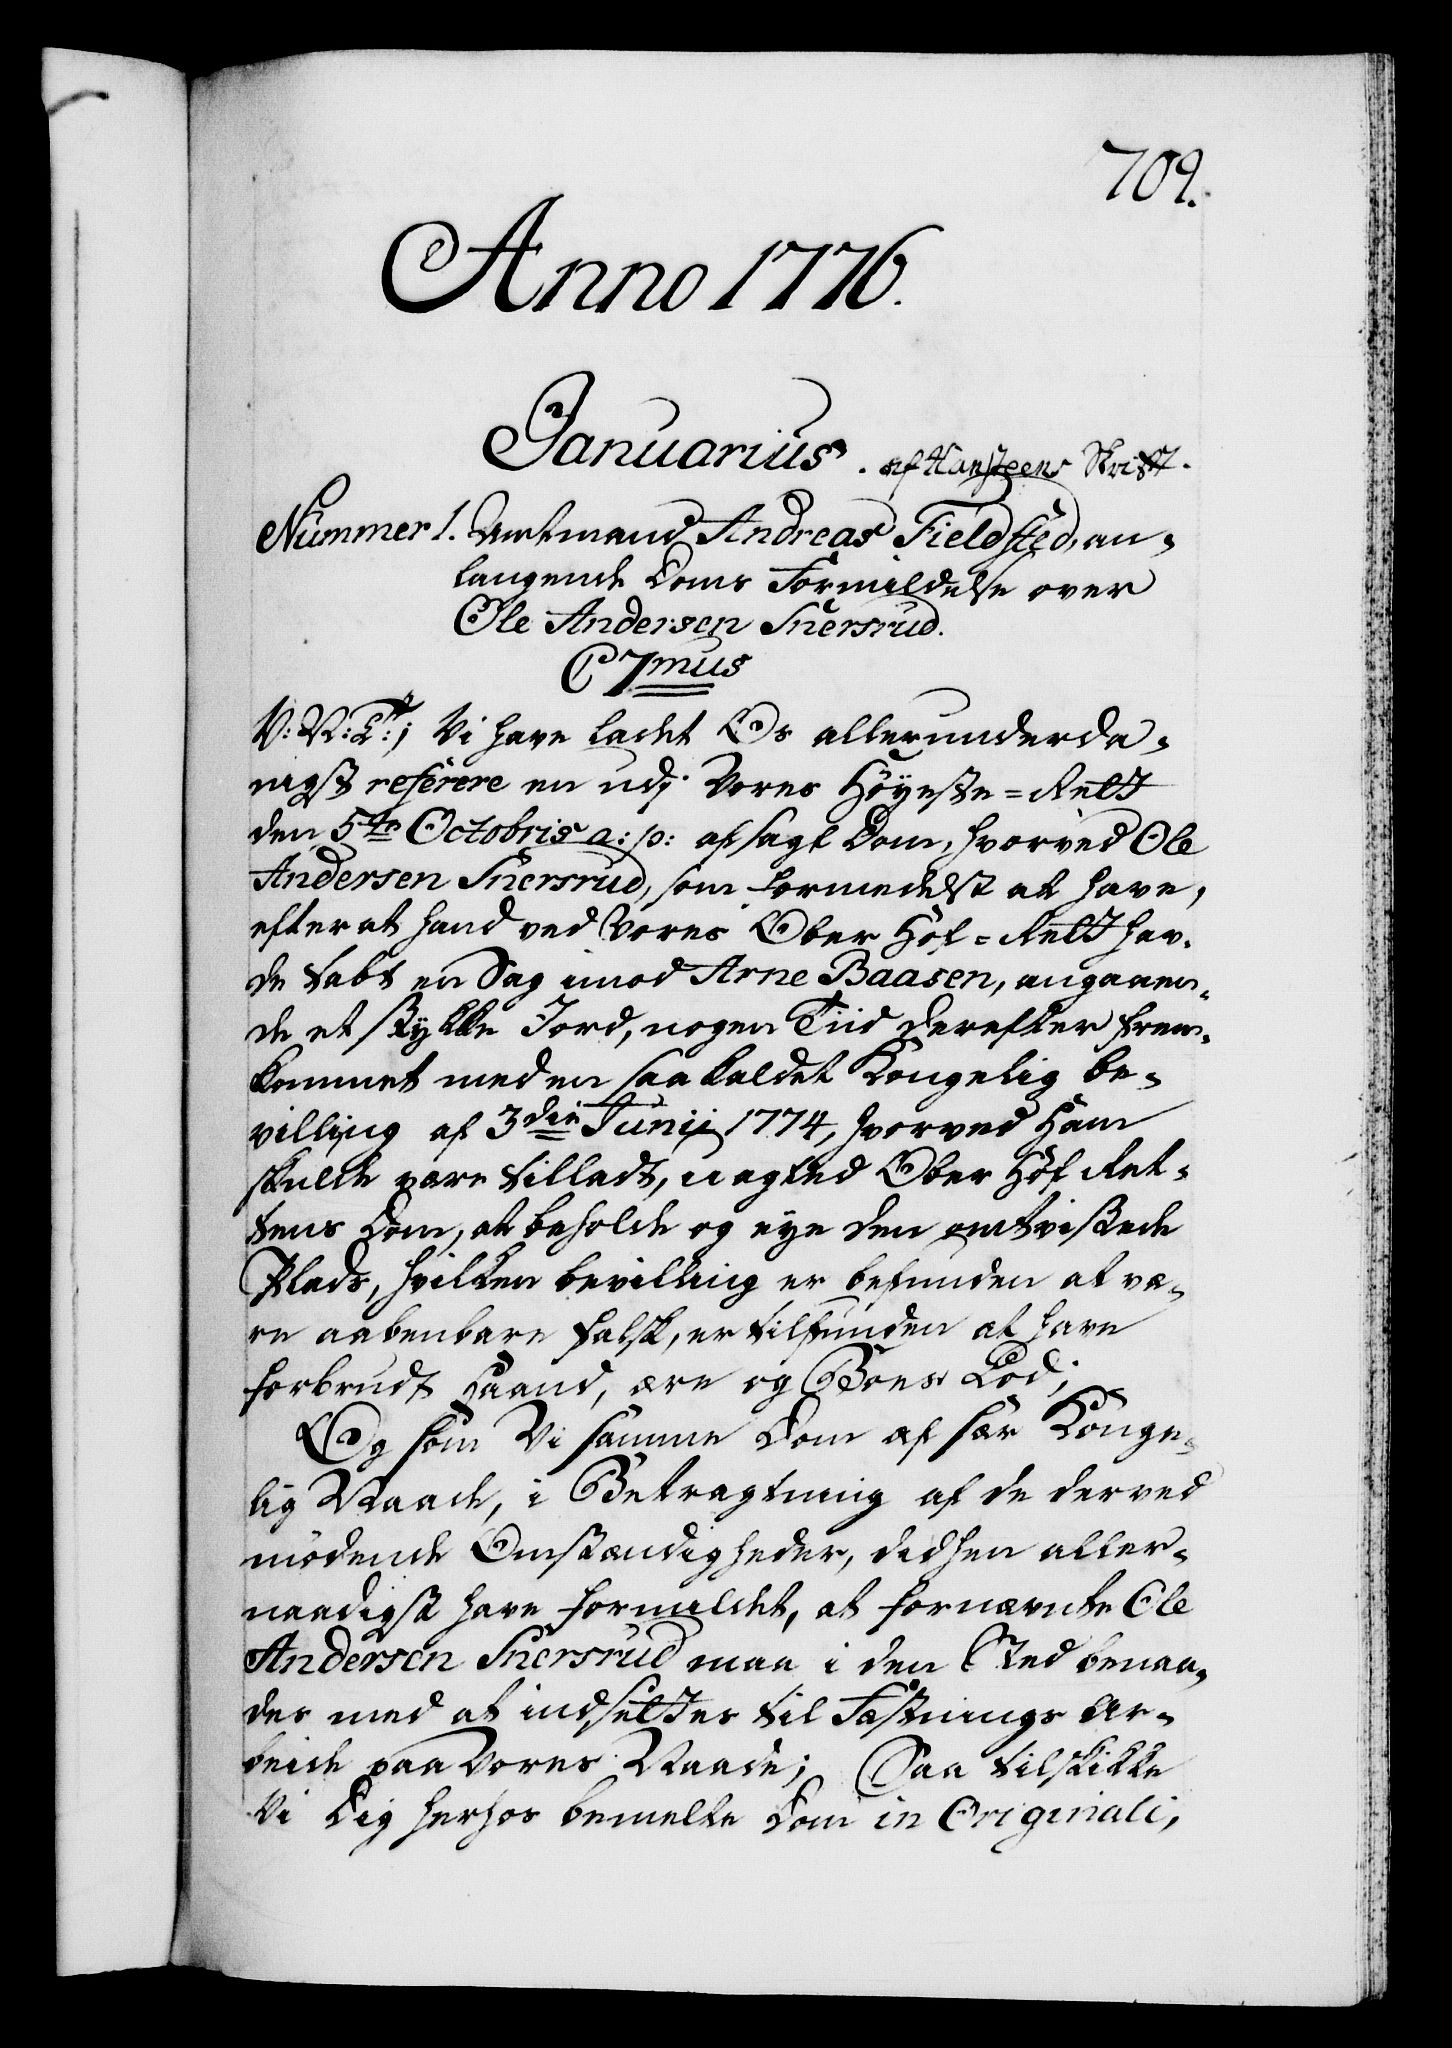 709.
Anno 1776.
Januarius. af Hansteens Skrift.
Nummer 1. Amtmand Andreas Fieldsted, an-
langende Doms Formildelse over
Ole Andersen Snersrud.
C 7mus
V: N: G:; Vi have ladet Os allerunderda-
nigst referere en udj Vores Höyeste-Rett
den 5te Octobris a: p: afsagt Dom, hvorved Ole
Andersen Snersrud, som formedelst at have,
efter at hand ved Vores Ober Hof-Rett hav-
de tabt en Sag imod Arne Baasen, angaaen-
de et stykke Jord, nogen Tiid derefter frem-
kommet med en saa kaldet Kongelig be-
villing af 3die Junii 1774, hvorved Ham
skulle være tilladt, uagted Ober Hof Ret-
tens Dom, at beholde og eye den omtvistede
Plads, hvilken bevilling er befunden at væ-
re aabenbare falsk, er tilfunden at have
forbrudt Haand, ære og Boes Lod;
Og som Vi samme Dom af sær Konge-
lig Naade, i Betragtning af de derved
mödende Omstændigheder, didhen aller-
naadigst have formildet, at fornævnte Ole
Andersen Snersrud maa i den Sted benaa-
des med at indsettes til Fæstnings Ar-
beide paa Vores Naade; Saa tilskikke
Vi Dig herhos bemelte Dom in Originali,